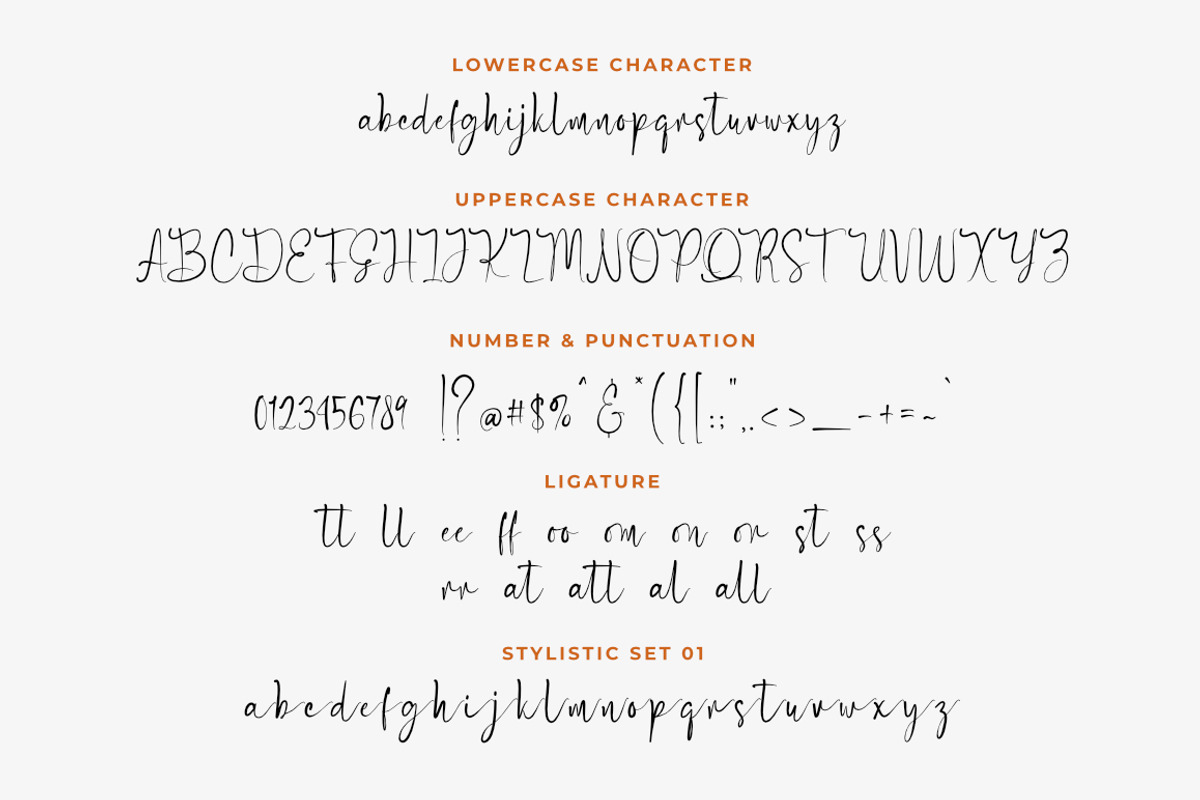 LOWERCASE CHARACTER
abcdefghijklmnopqrstuvwxyz
UPPERCASE CHARACTER
ABCDEFGHIJKLMNOPQRSTUVWXYZ
NUMBER & PUNCTUATION
0123456789 !?@#$%^&*({[:;",.<>_-+=~`
LIGATURE
tt ll ee ff oo om on or st ss
rr at att al all
STYLISTIC SET 01
abcdefghijklmnopqrstuvwxyz